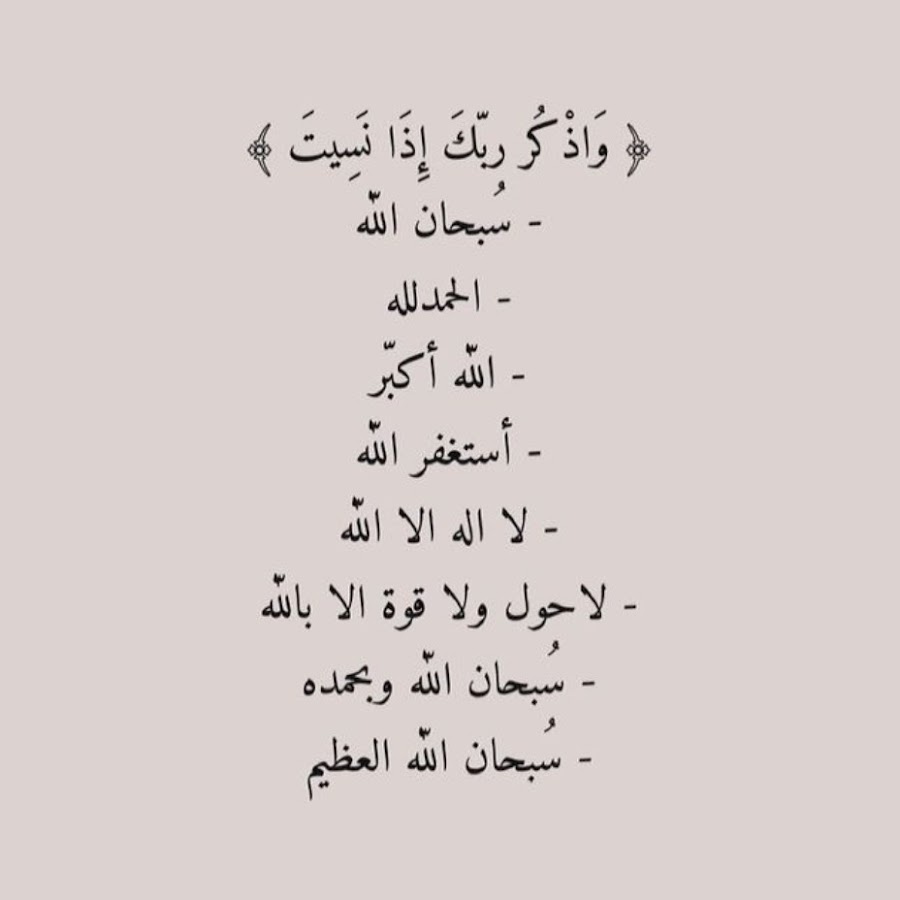 ﴿ وَاذْكُر ربّكَ إِذَا نَسِيتَ ﴾
- سُبحان الله
- الحمدلله
- الله أكبّر
- أستغفر الله
- لا اله الا الله
- لاحول ولا قوة الا بالله
- سُبحان الله وبحمده
- سُبحان الله العظيم